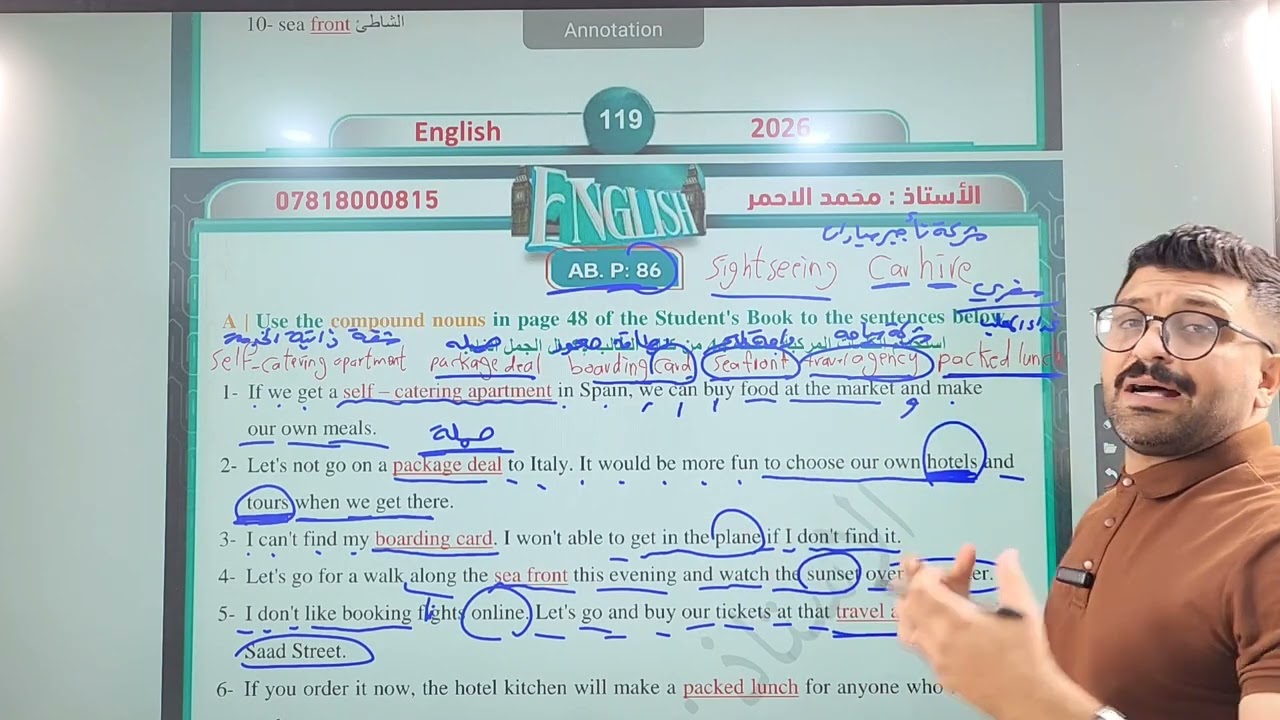 10- sea front الشاطئ
Annotation
English 119 2026
07818000815 ENGLISH الأستاذ : محمد الاحمر
شركة تأجير سيارات
AB. P: 86 Sightseeing Car hire
سفري
A | Use the compound nouns in page 48 of the Student's Book to the sentences below
شقة ذاتية الخدمة
self-catering apartment package deal boarding card sea front travel agency packed lunch
1- If we get a self – catering apartment in Spain, we can buy food at the market and make
our own meals.
2- Let's not go on a package deal to Italy. It would be more fun to choose our own hotels and
tours when we get there.
3- I can't find my boarding card. I won't able to get in the plane if I don't find it.
4- Let's go for a walk along the sea front this evening and watch the sunset over
5- I don't like booking flights online. Let's go and buy our tickets at that travel
Saad Street.
6- If you order it now, the hotel kitchen will make a packed lunch for anyone who